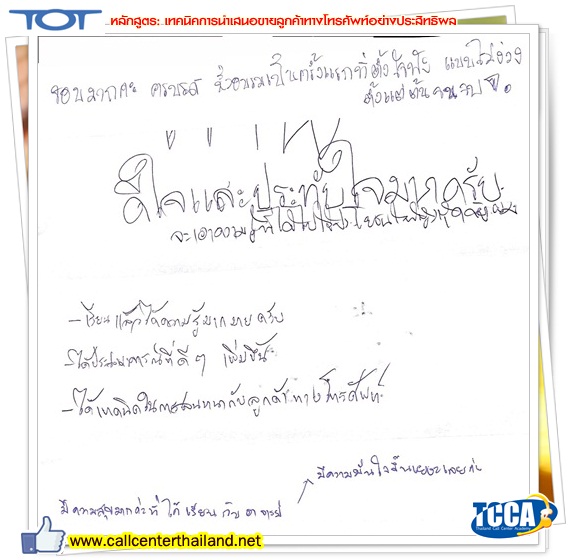 TOT หลักสูตร: เทคนิคการนำเสนอขายลูกค้าทางโทรศัพท์อย่างประสิทธิผล
ชอบมากคะ ครบรส นั่งอบรมเป็นครั้งแรกที่ตั้งใจฟัง แบบไม่ง่วง
ตั้งแต่ต้นจนจบ
ดีใจและประทับใจมากครับ
จะเอาความรู้ที่ได้ไปใช้
- เรียนแล้วได้ความรู้มากมายครับ
- ได้ประสบการณ์ที่ดีๆ เพิ่มขึ้น
- ได้เทคนิคในการสนทนากับลูกค้าทางโทรศัพท์
มีความมั่นใจขึ้นเยอะเลยค่ะ
มีความสุขมากค่ะที่ได้เรียนกับอาจารย์
TCCA
Thailand Call Center Academy
www.callcenterthailand.net